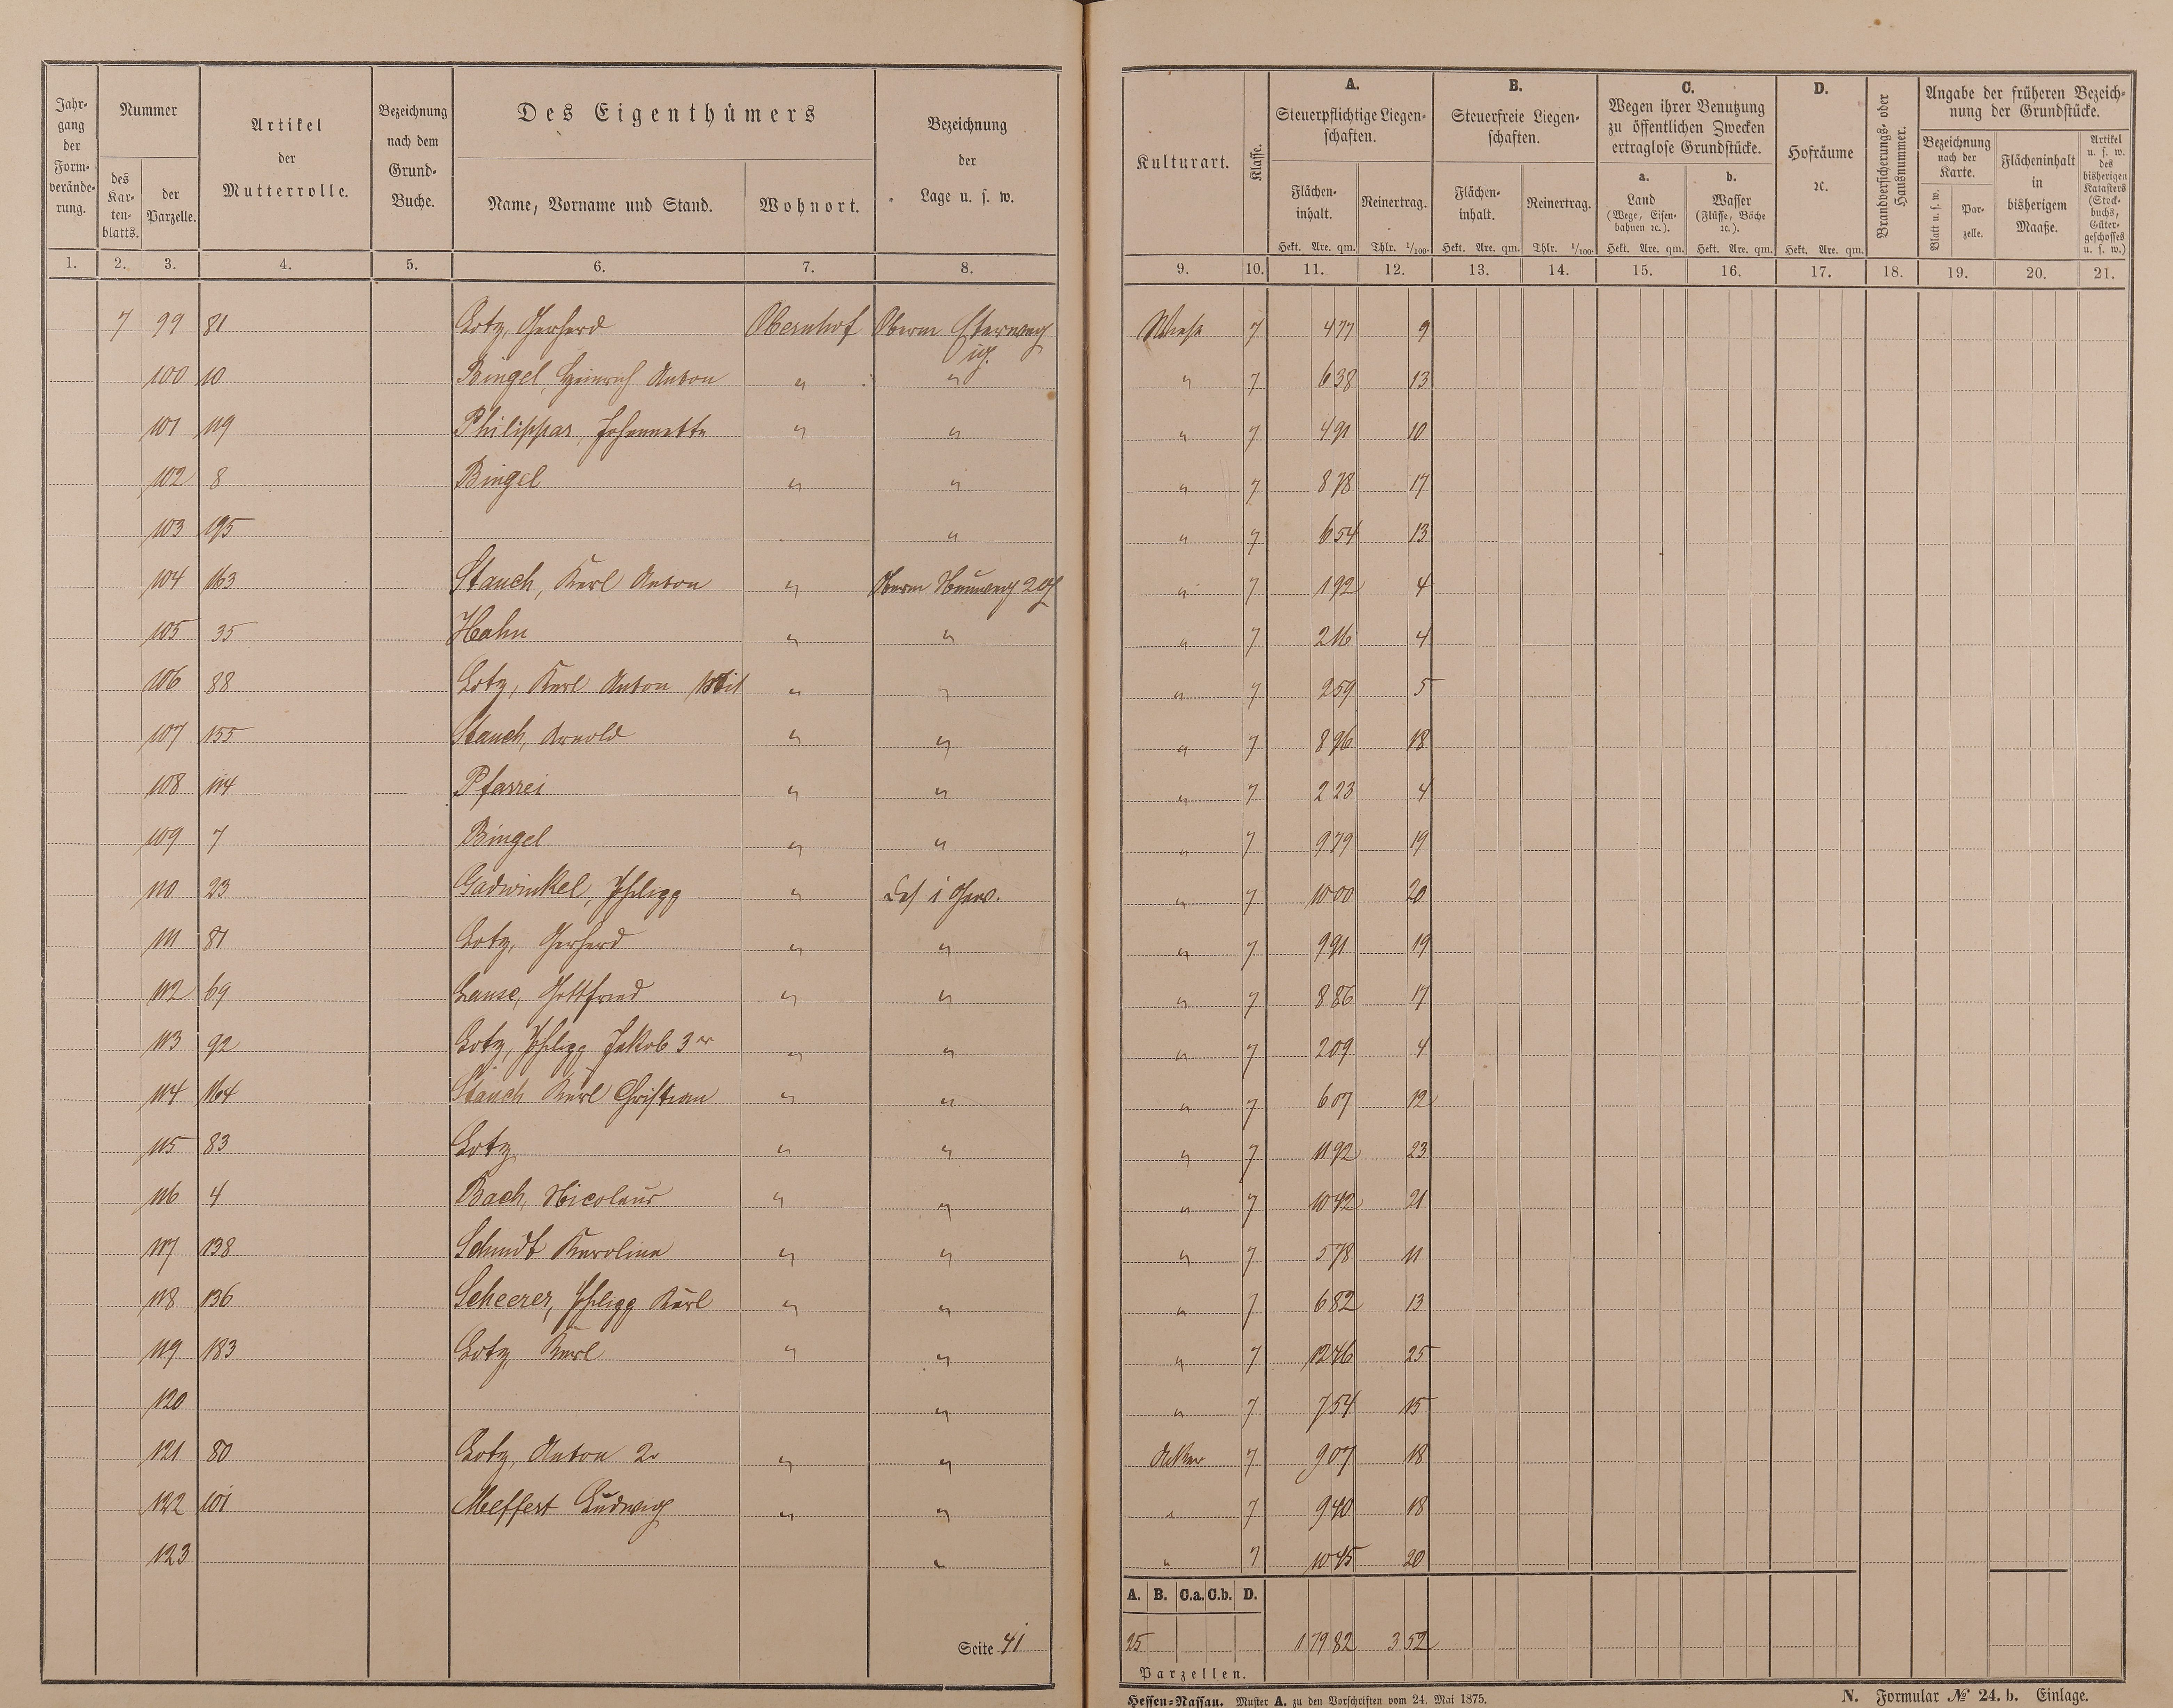 Jahr-
gang
der
Form-
verände-
rung.
Nummer
des
Kar-
ten-
blatts.
der
Parzelle.
Artikel
der
Mutterrolle.
Bezeichnung
nach dem
Grund-
Buche.
Des Eigenthümers
Name, Vorname und Stand.
Wohnort.
Bezeichnung
der
Lage u. s. w.
Kulturart.
Klasse.
A.
Steuerpflichtige Liegen-
schaften.
Flächen-
inhalt.
Hekt. Are. qm.
Reinertrag.
Thlr. 1/100.
B.
Steuerfreie Liegen-
schaften.
Flächen-
inhalt.
Hekt. Are. qm.
Reinertrag.
Thlr. 1/100.
C.
Wegen ihrer Benutzung
zu öffentlichen Zwecken
ertraglose Grundstücke.
a.
Land
(Wege, Eisen-
bahnen ꝛc.).
Hekt. Are. qm.
b.
Wasser
(Flüsse, Bäche
ꝛc.).
Hekt. Are. qm.
D.
Hofräume
ꝛc.
Hekt. Are. qm.
Brandversicherungs- oder
Hausnummer.
Angabe der früheren Bezeich-
nung der Grundstücke.
Bezeichnung
nach der
Karte.
Blatt u. s. w.
Par-
zelle.
Flächeninhalt
in
bisherigem
Maaße.
Artikel
u. s. w.
des
bisherigen
Katasters
(Stock-
buchs,
Güter-
geschosses
u. s. w.)
1. 2. 3. 4. 5. 6. 7. 8. 9. 10. 11. 12. 13. 14. 15. 16. 17. 18. 19. 20. 21.
7 99 81 Lotz, Gerhard Obernhof Oberm Wiese 7 477 9
100 10 Bingel, Heinrich Anton " " " 7 638 13
101 119 Philippar, Johannette " " " 7 491 10
102 8 Bingel " " " 7 878 17
103 195 " " 7 654 13
104 163 Stauch, Karl Anton " Oberm 7 192 4
105 35 Hahn " " " 7 216 4
106 88 Lotz, Karl Anton " " " 7 259 5
107 155 Stauch, Arnold " " " 7 896 18
108 114 Pfarrei " " " 7 223 4
109 7 Bingel " " " 7 979 19
110 23 Gadwinkel, Philipp " " 7 1000 20
111 81 Lotz, Gerhard " " " 7 991 19
112 69 Lause, Gottfried " " " 7 886 17
113 92 Lotz, Philipp Jakob 3r " " " 7 209 4
114 164 Stauch Karl Christian " " " 7 607 12
115 83 Lotz " " " 7 1192 23
116 4 Bach, Nicolaus " " " 7 1042 21
117 138 Schmdt Karoline " " " 7 578 11
118 136 Scheerer, Philipp Karl " " " 7 682 13
119 183 Lotz, Karl " " " 7 1246 25
120 " " 7 754 15
121 80 Lotz, Anton 2r " " Acker 7 907 18
122 101 Meffert Ludwig " " " 7 940 18
123 " " 7 1045 20
A. B. C.a. C.b. D.
Seite 41
25 17982 352
Parzellen.
Hessen-Nassau. Muster A. zu den Vorschriften vom 24. Mai 1875.
N. Formular № 24. b. Einlage.